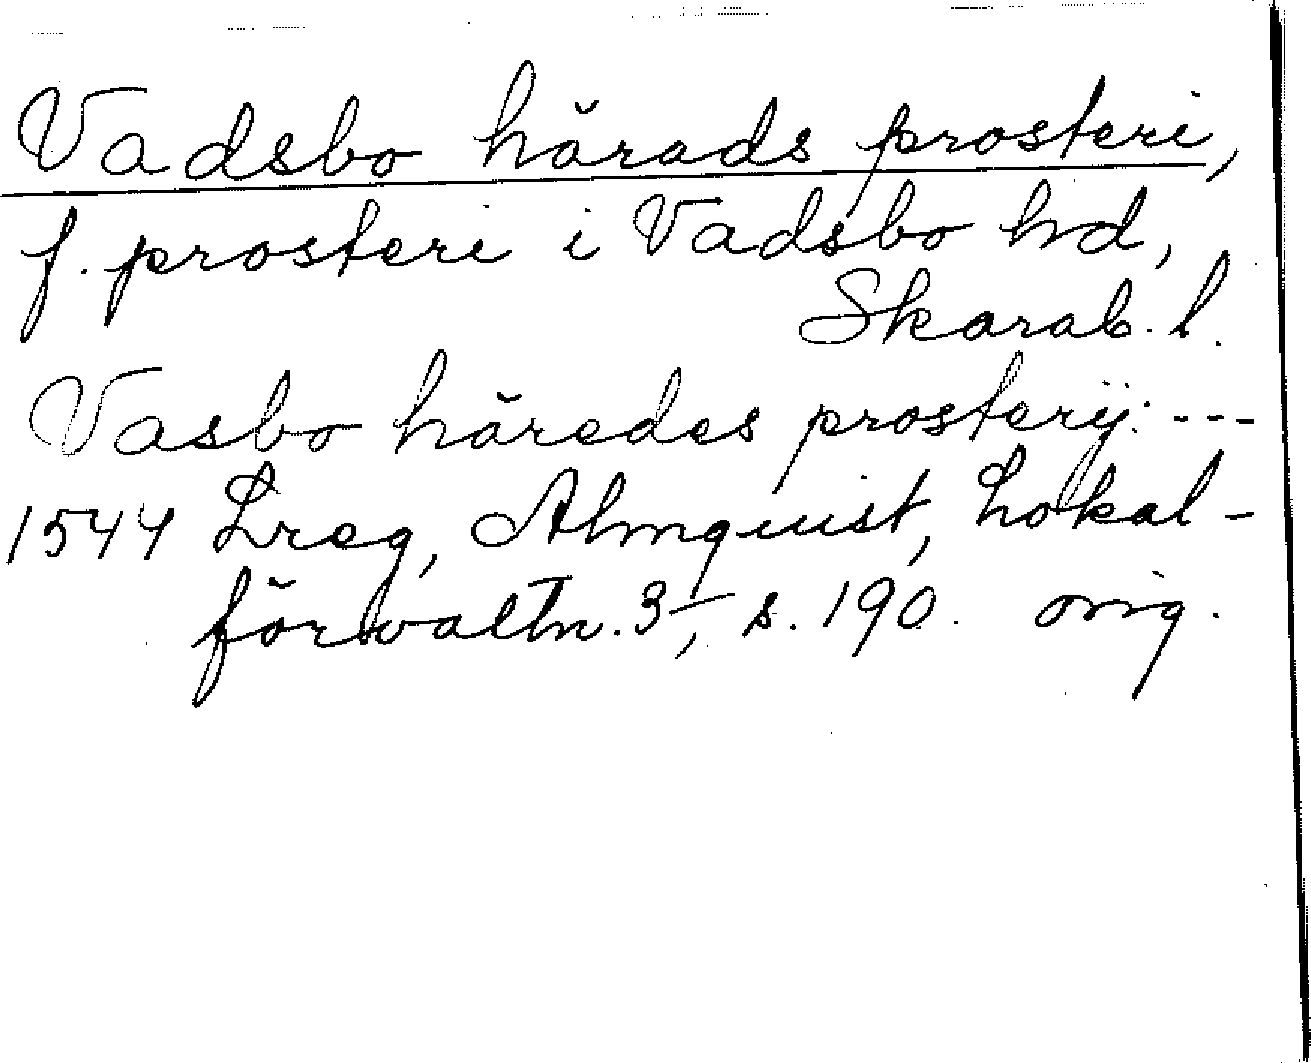 Vadsbo härads prosteri,
f. prosteri i Vadsbo hd,
Skarab. l.
Vasbo häredes prosterij: ---
1544 Lreg, Almquist, Lokal-
förvaltn. 3, s. 190. orig.